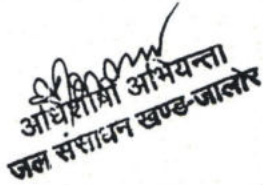 अधिशाषी अभियन्ता
जल संसाधन खण्ड-जालोर